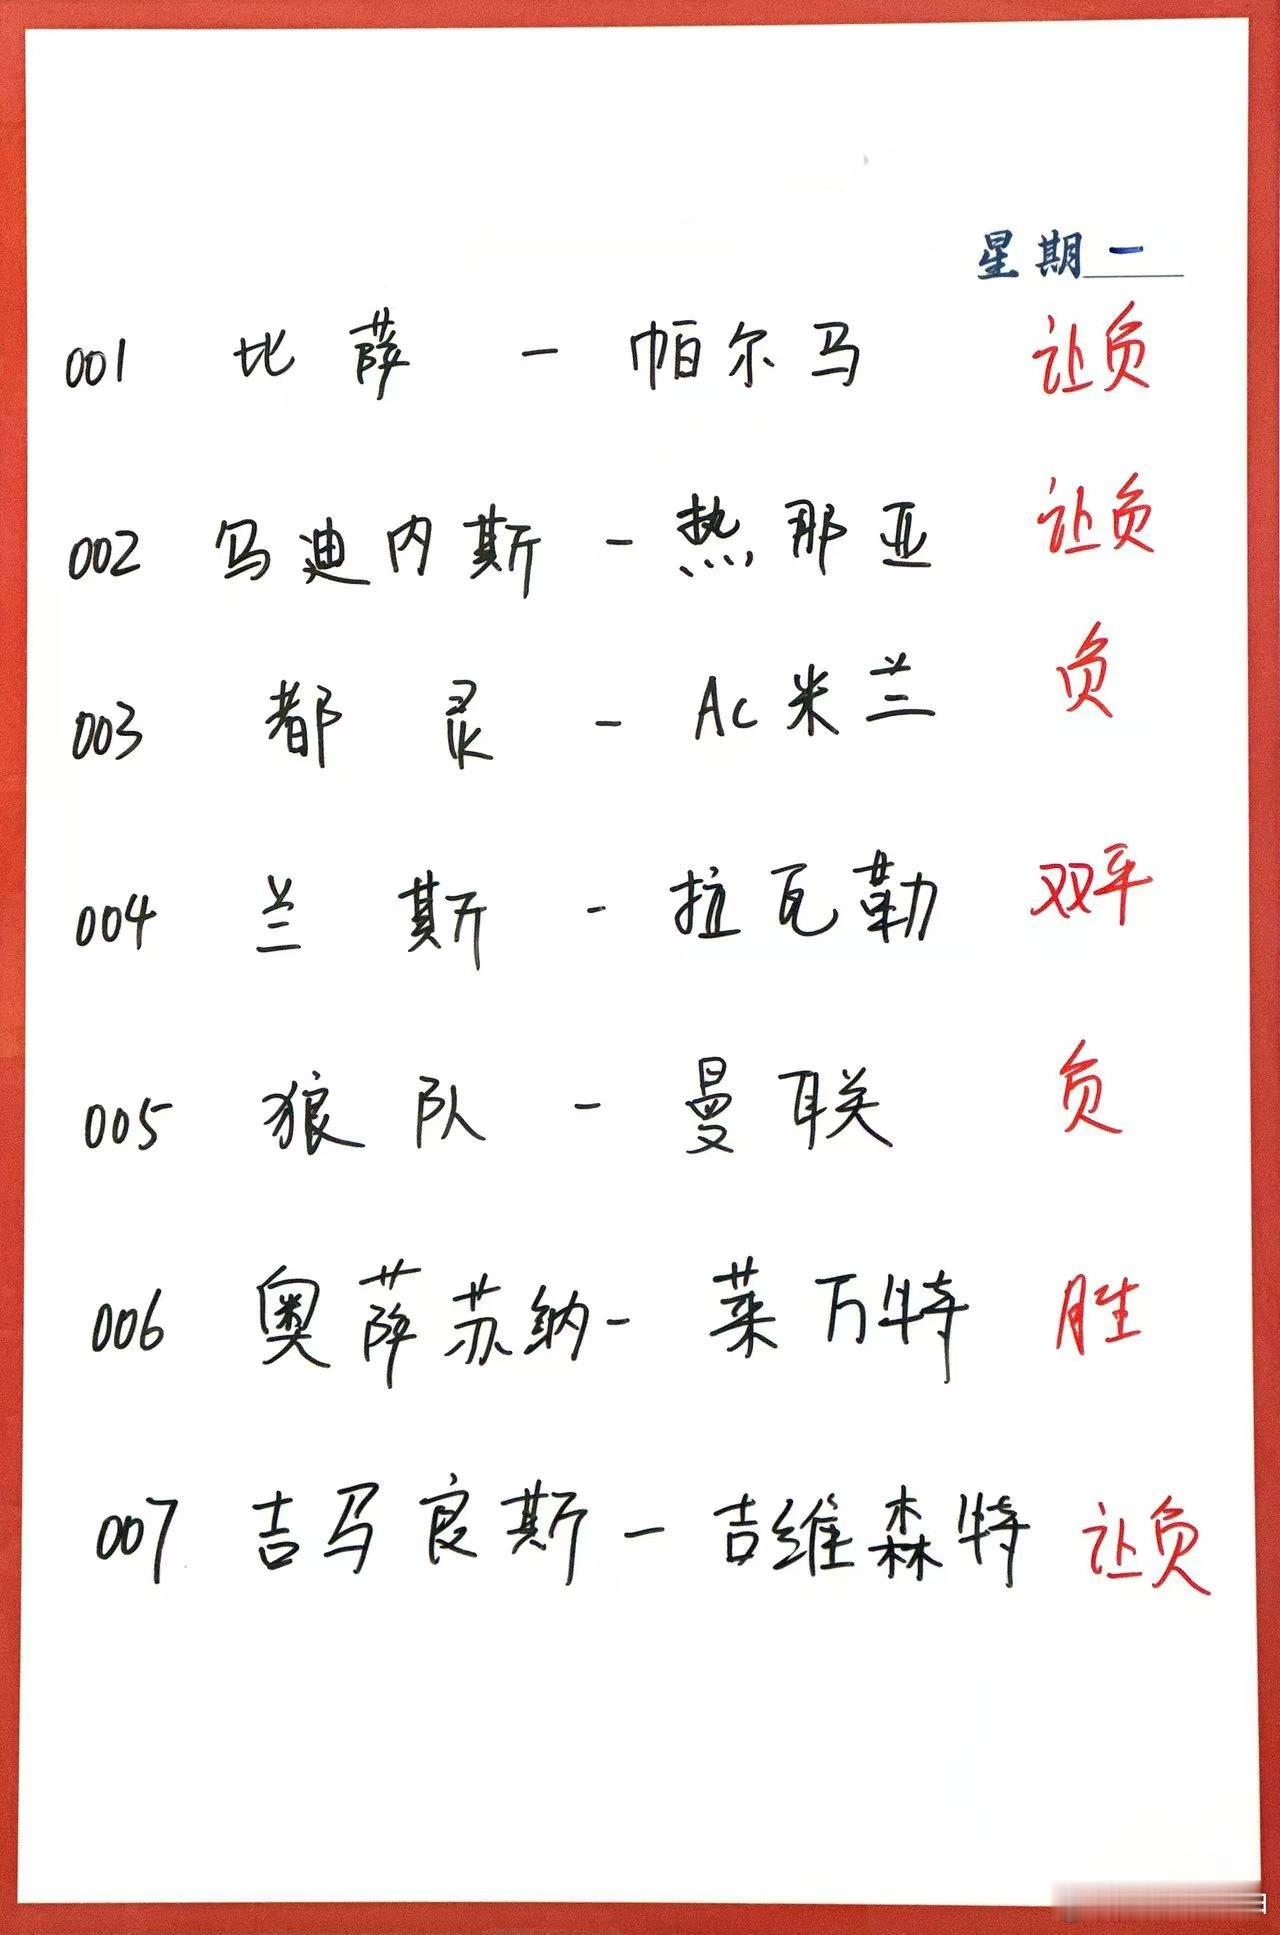 星期一
001 比萨 - 帕尔马 让负
002 乌迪内斯 - 热那亚 让负
003 都灵 - Ac米兰 负
004 兰斯 - 拉瓦勒 双平
005 狼队 - 曼联 负
006 奥萨苏纳 - 莱万特 胜
007 吉马良斯 - 吉维森特 让负